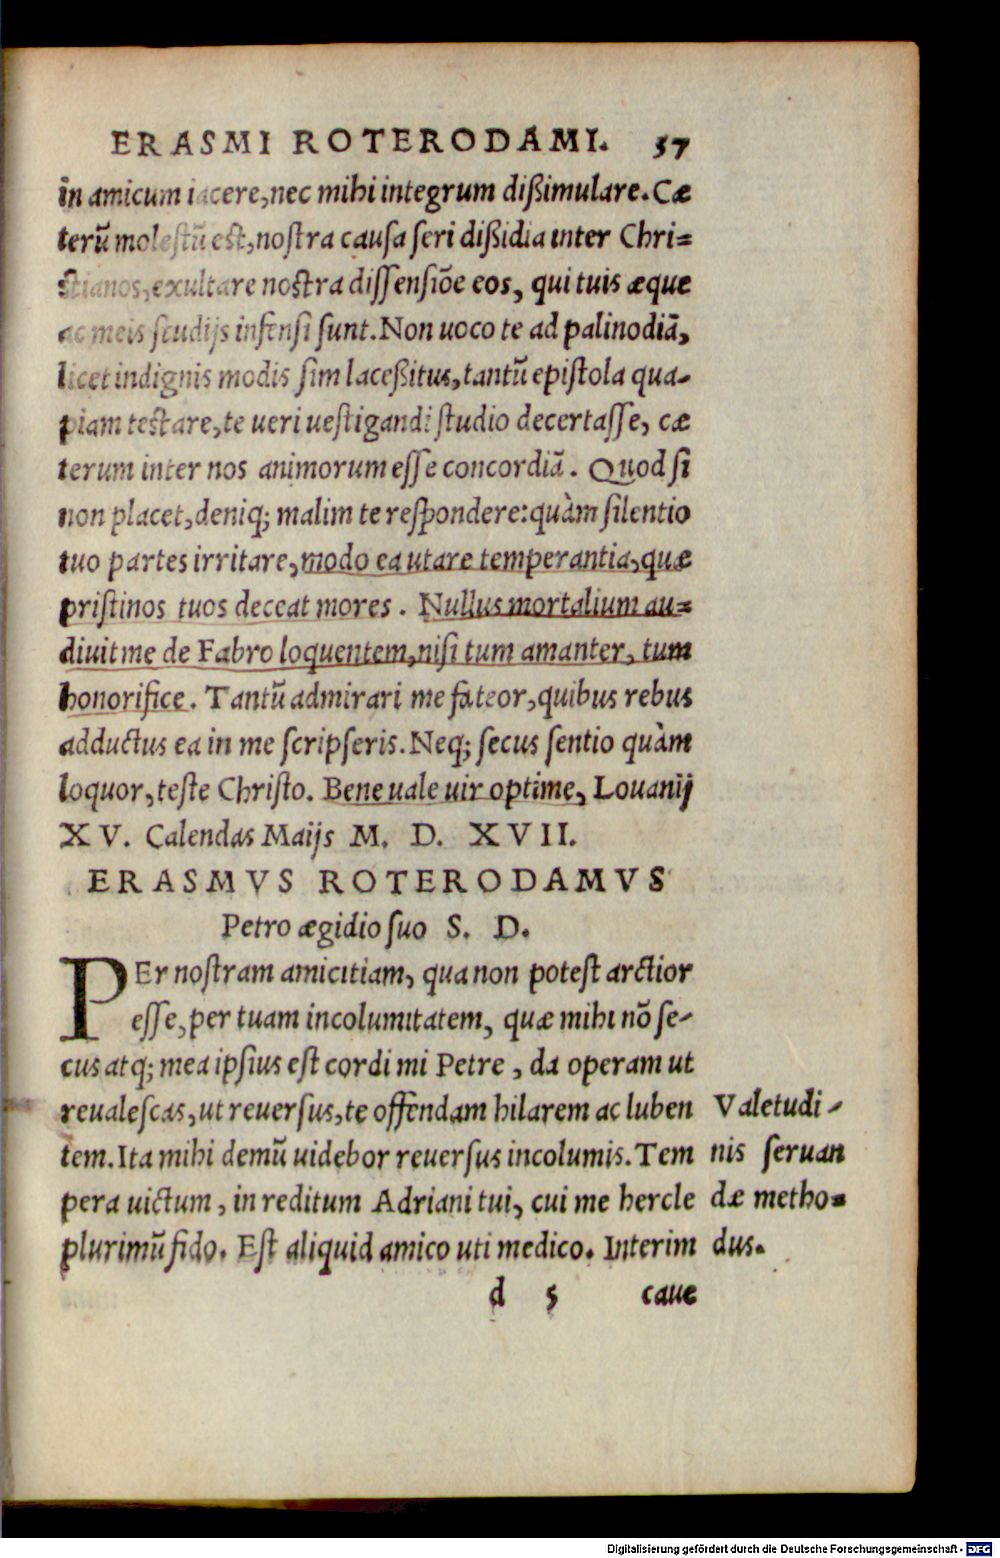 ERASMI ROTERODAMI. 57
in amicum iacere, nec mihi integrum dißimulare. Cæ
terũ molestũ est, nostra causa seri dißidia inter Chri=
stianos, exultare nostra dissensiõe eos, qui tuis æque
ac meis studijs infensi sunt. Non uoco te ad palinodiã,
licet indignis modis sim laceßitus, tantũ epistola qua-
piam testare, te ueri uestigandi studio decertasse, cæ
terum inter nos animorum esse concordiã. Quod si
non placet, deniq; malim te respondere: quàm silentio
tuo partes irritare, modo ea utare temperantia, quæ
pristinos tuos deceat mores. Nullus mortalium au=
diuit me de Fabro loquentem, nisi tum amanter, tum
honorifice. Tantũ admirari me fateor, quibus rebus
adductus ea in me scripseris. Neq; secus sentio quàm
loquor, teste Christo. Bene uale uir optime, Louanij
XV. Calendas Maijs M. D. XVII.
ERASMVS ROTERODAMVS
Petro ægidio suo S. D.
PEr nostram amicitiam, qua non potest arctior
esse, per tuam incolumitatem, quæ mihi nõ se-
cus atq; mea ipsius est cordi mi Petre, da operam ut
reualescas, ut reuersus, te offendam hilarem ac luben
tem. Ita mihi demũ uidebor reuersus incolumis. Tem
pera uictum, in reditum Adriani tui, cui me hercle
plurimũ fido. Est aliquid amico uti medico. Interim
Valetudi-
nis seruan
dæ metho=
dus.
d 5 caue
Digitalisierung gefördert durch die Deutsche Forschungsgemeinschaft - DFG